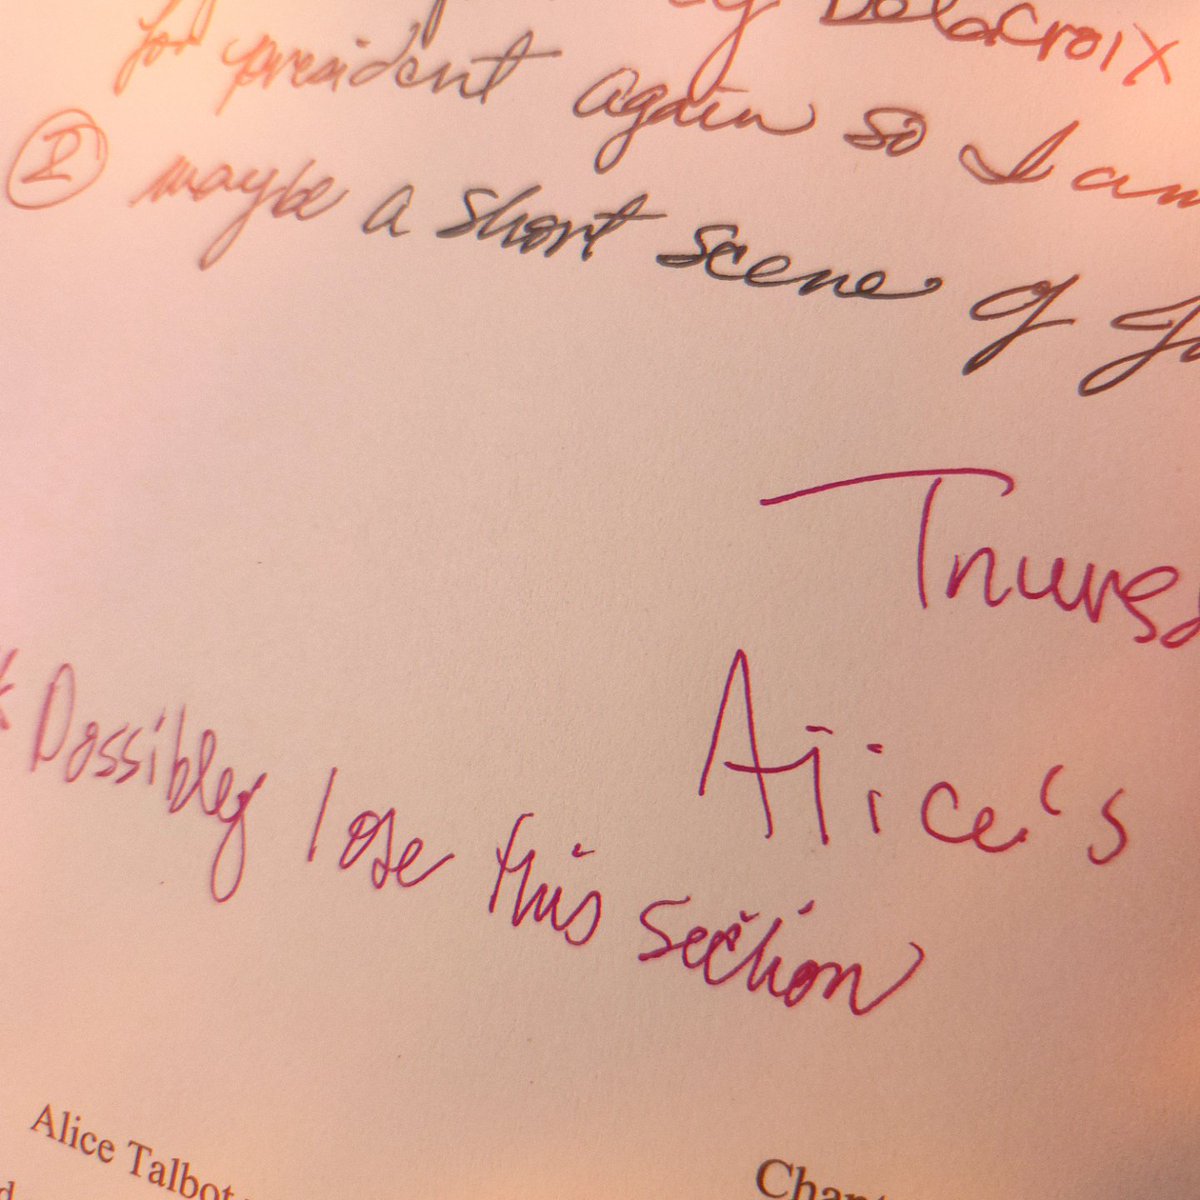 Delacroix
for president again so I am
II maybe a short scene of
Thurs
Alice's
* Possibley lose this section
Alice Talbot
Chap